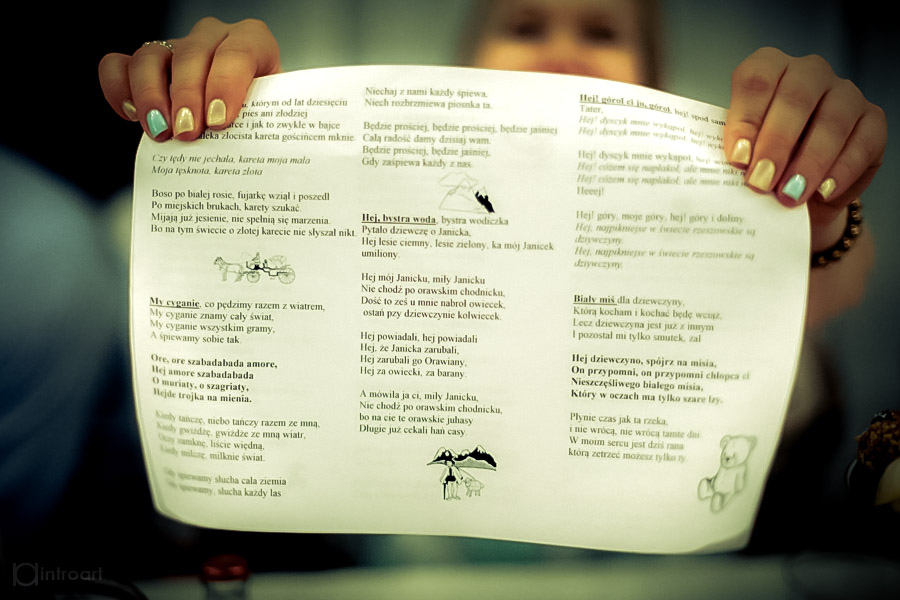 którym od lat dziesięciu
pies ani złodziej
i jak to zwykle w bajce
złocista kareta gościńcem mknie.
Czy tędy nie jechała, kareta moja mała
Moja tęsknota, kareta złota
Boso po białej rosie, fujarkę wziął i poszedł
Po miejskich brukach, karety szukać.
Mijają już jesienie, nie spełnią się marzenia.
Bo na tym świecie o złotej karecie nie słyszał nikt.
My cyganie, co pędzimy razem z wiatrem,
My cyganie znamy cały świat,
My cyganie wszystkim gramy,
A śpiewamy sobie tak.
Ore, ore szabadabada amore,
Hej amore szabadabada
O muriaty, o szagriaty,
Hejde trojka na mienia.
Kiedy tańczę, niebo tańczy razem ze mną,
Kiedy gwiżdżę, gwiżdże ze mną wiatr,
zamknę, liście więdną,
Kiedy milczę, milknie świat.
śpiewamy słucha cała ziemia
śpiewamy, słucha każdy las
Niechaj z nami każdy śpiewa,
Niech rozbrzmiewa piosnka ta.
Będzie prościej, będzie prościej, będzie jaśniej
Całą radość damy dzisiaj wam.
Będzie prościej, będzie jaśniej,
Gdy zaśpiewa każdy z nas.
Hej, bystra woda, bystra wodiczka
Pytało dziewczę o Janicka,
Hej lesie ciemny, lesie zielony, ka mój Janicek
umiliony.
Hej mój Janicku, miły Janicku
Nie chodź po orawskim chodnicku,
Dość toześ u mnie nabroł owiecek,
ostań przy dziewczynie kolwiecek.
Hej powiadali, hej powiadali
Hej, że Janicka zarubali,
Hej zarubali go Orawiany,
Hej za owiecki, za barany.
A mówiła ja ci, miły Janicku,
Nie chodź po orawskim chodnicku,
bo na cie te orawskie juhasy
Długie już cekali hań casy.
Hej! górol ci ja, górol, hej! spod sam
Tater,
Hej! dyscyk mnie wykąpoł, hej!
Hej! dyscyk mnie wykąpoł, hej!
Hej! dyscyk mnie wykąpoł, hej!
Hej! cózem się napłakoł, ale mnie nikt
Hej! cózem się napłakoł, ale mnie nikt
Heeej!
Hej! góry, moje góry, hej! góry i doliny
Hej, najpikniejse w świecie rzeszowskie są
dziywczyny.
Hej, najpikniejse w świecie rzeszowskie są
dziywczyny.
Biały miś dla dziewczyny,
Którą kocham i kochać będę wciąż,
Lecz dziewczyna jest już z innym
I pozostał mi tylko smutek, żal
Hej dziewczyno, spójrz na misia,
On przypomni, on przypomni chłopca ci
Nieszczęśliwego białego misia,
Który w oczach ma tylko szare łzy.
Płynie czas jak ta rzeka,
i nie wróca, nie wróca tamte dni
W moim sercu jest dziś rana
którą zetrzeć możesz tylko ty.
introart